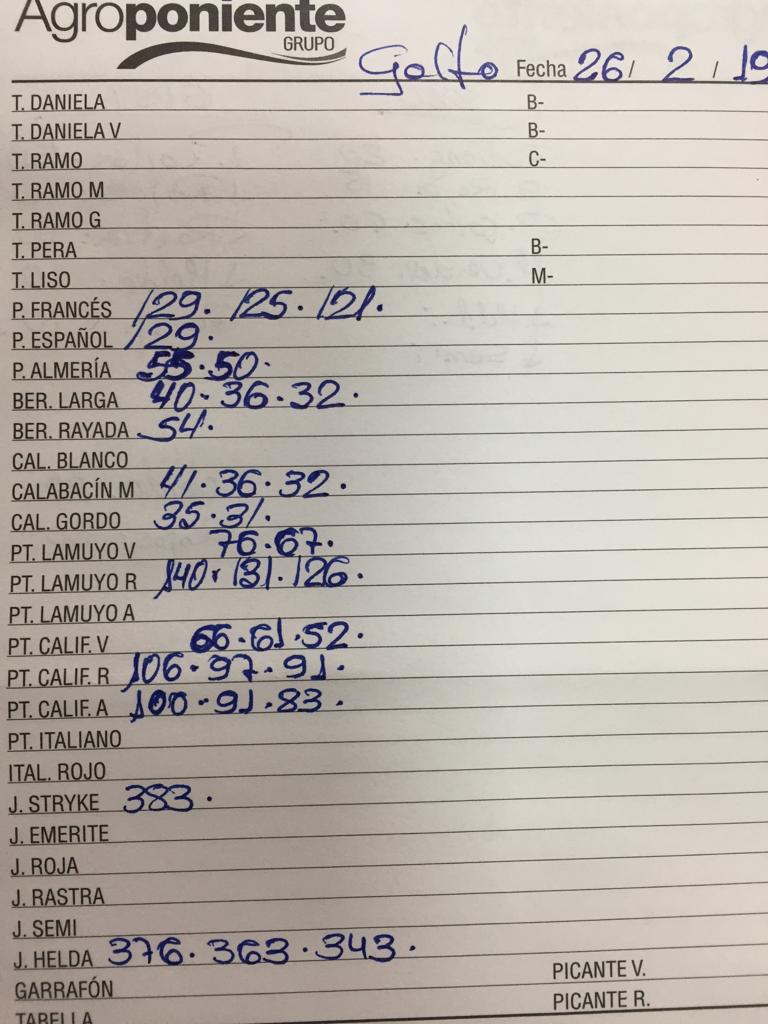 Agroponiente
GRUPO
Golfo Fecha 26/ 2 / 19
T. DANIELA B-
T. DANIELA V B-
T. RAMO C-
T. RAMO M
T. RAMO G
T. PERA B-
T. LISO M-
P. FRANCÉS 129. 125. 121.
P. ESPAÑOL 129.
P. ALMERÍA 55.50.
BER. LARGA 40.36.32.
BER. RAYADA 54.
CAL. BLANCO
CALABACÍN M 41.36.32.
CAL. GORDO 35.31.
PT. LAMUYO V 76.67.
PT. LAMUYO R 140. 131. 126.
PT. LAMUYO A
PT. CALIF. V 66.61.52.
PT. CALIF. R 106.97.91.
PT. CALIF. A 100.91.83.
PT. ITALIANO
ITAL. ROJO
J. STRYKE 383.
J. EMERITE
J. ROJA
J. RASTRA
J. SEMI
J. HELDA 376.363.343.
GARRAFÓN PICANTE V.
TABELLA PICANTE R.